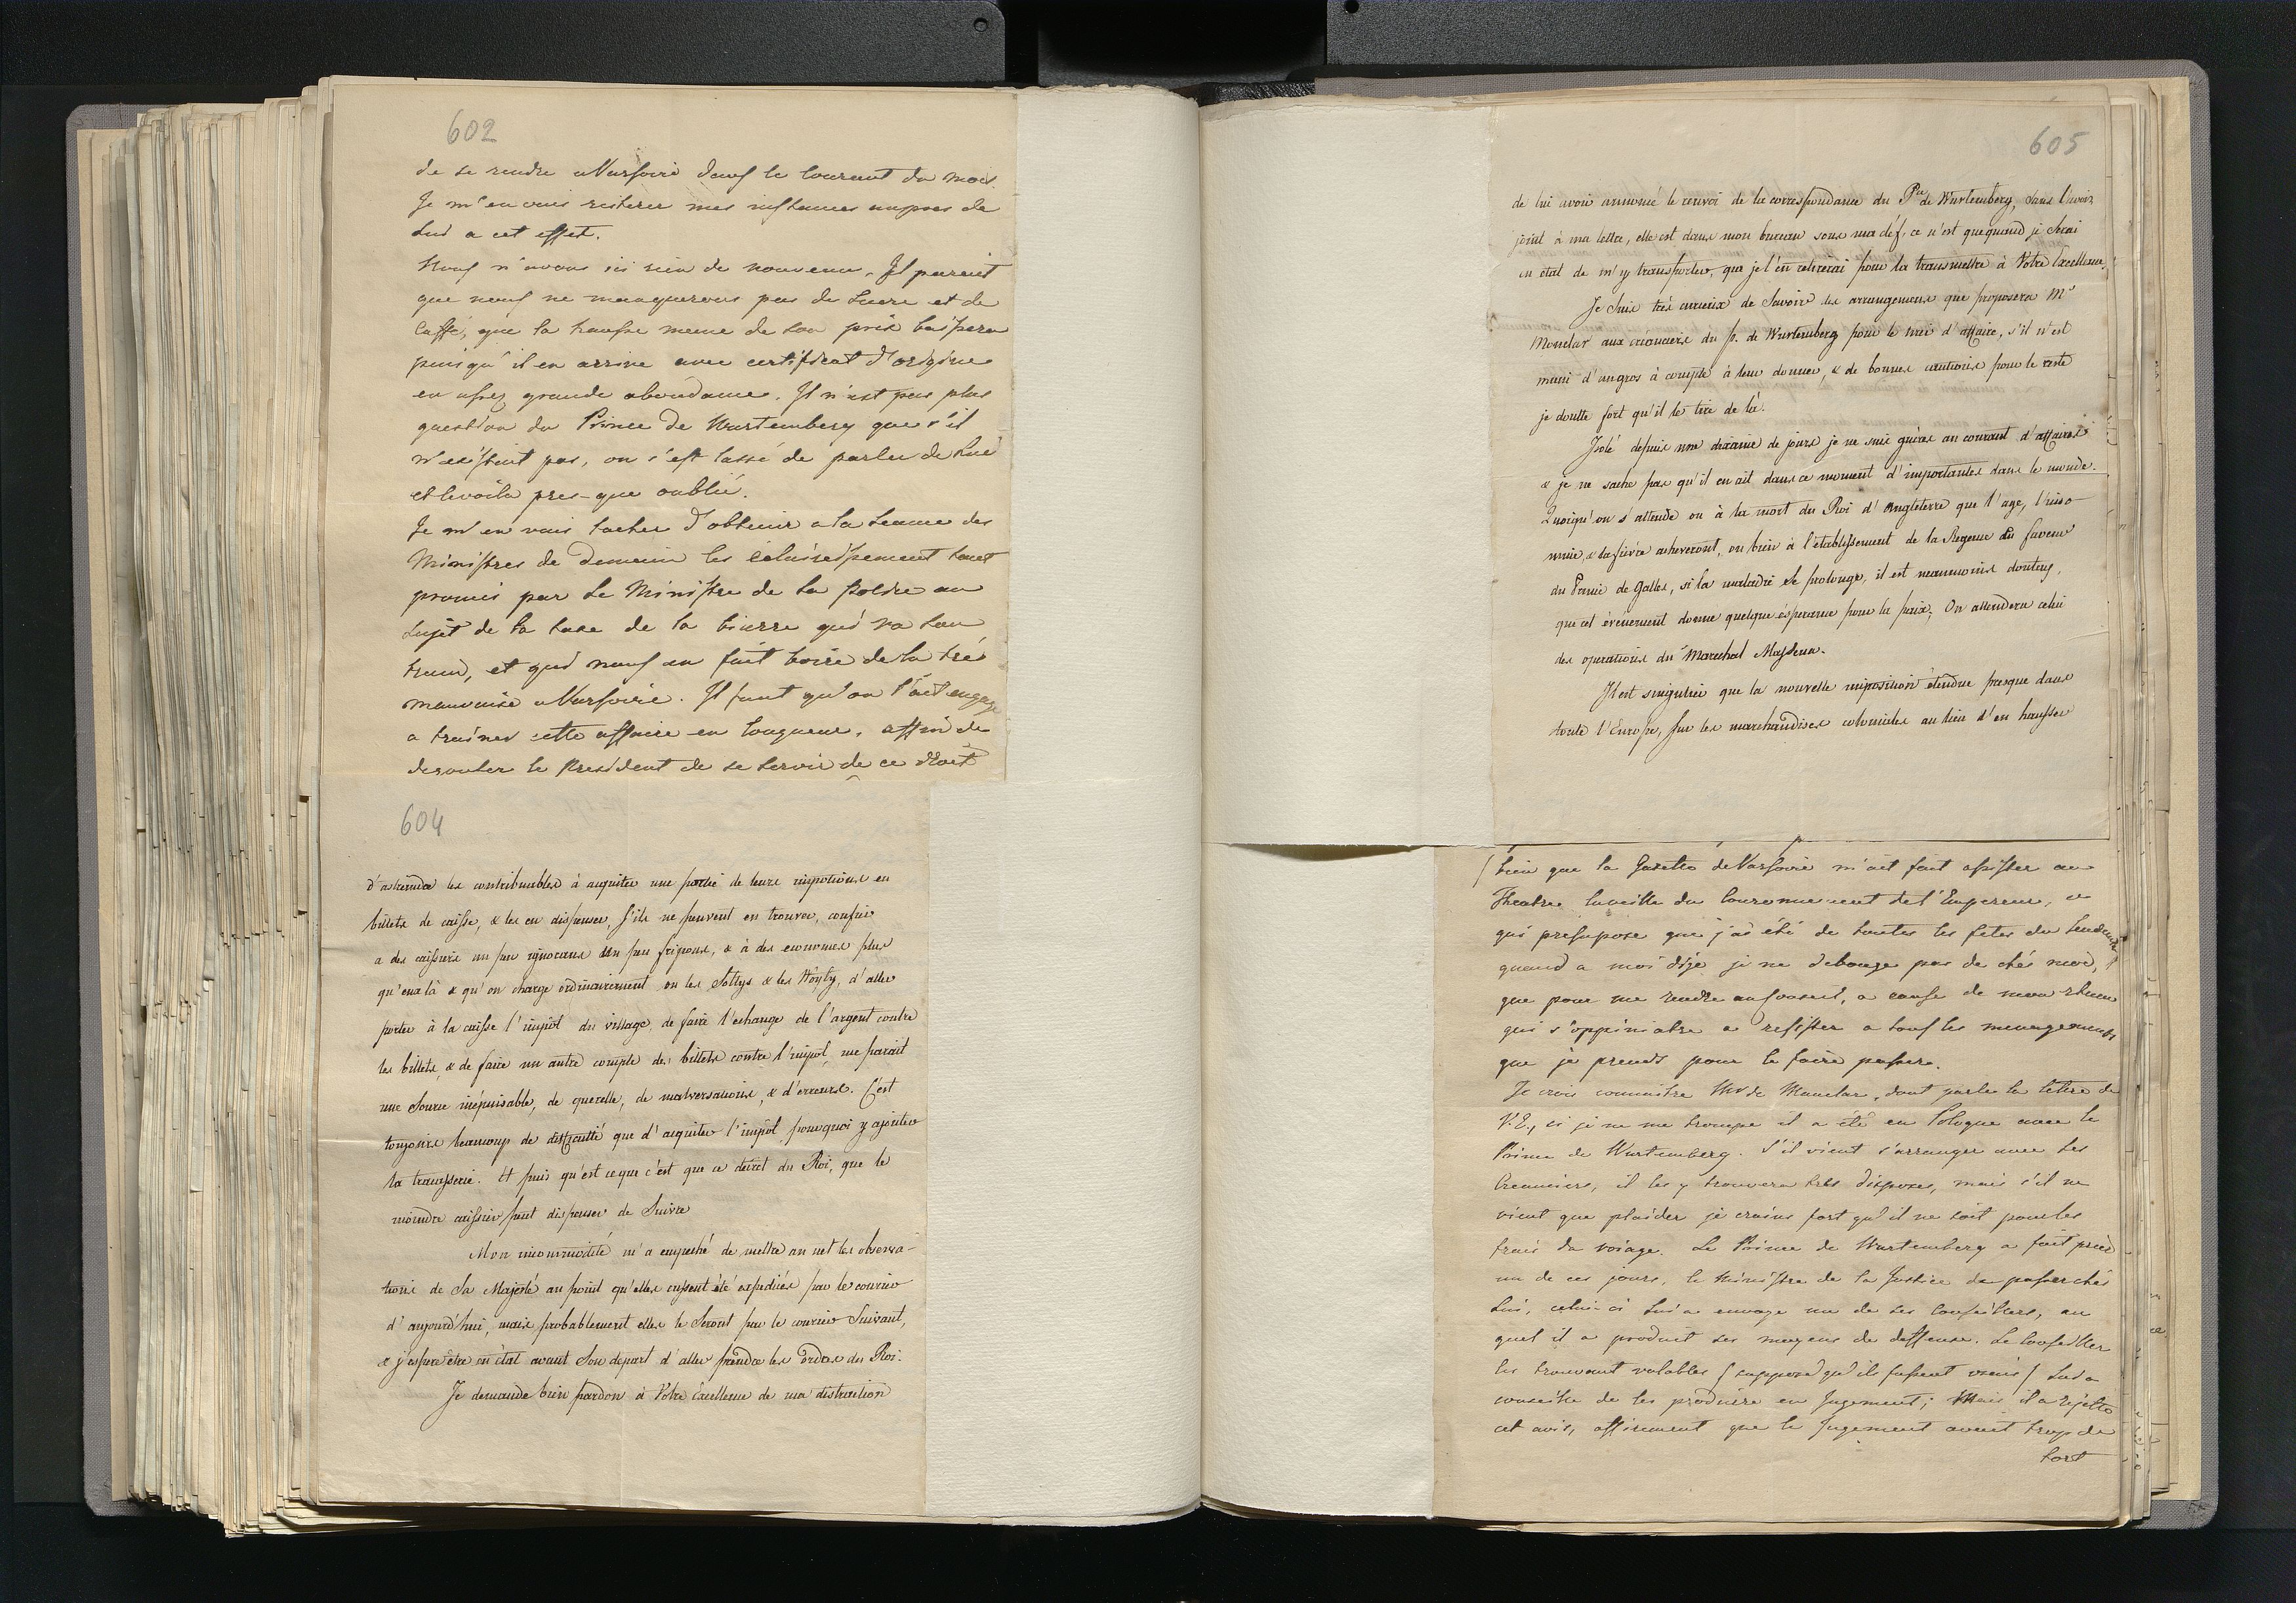 602
de se rendre a Varsovie dans le courant du mois.
Je m'en vais reiterer mes instances aupres de
Lui a cet effet.
Nous n'avons ici rien de nouveau. Il parait
que nous ne manquerons pas de Sucre et de
Caffé, que la hausse meme de son prix baissera
puisqu'il en arrive avec certificat d'origine
en assez grande abondance. Il n'est pas plus
question du Prince de Wurtemberg que s'il
n'existait pas, on s'est lassé de parler de Lui
et le voila pres-que oublié.
Je m'en vais tacher d'obtenir a la Seance des
Ministres de demain les eclaircissement tant
promis par le Ministre de la Police au
Sujet de la taxe de la bierre qui va son
train, et qui nous en fait boire de la tres
mauvaise a Varsovie. Il faut qu'on l'ait engagé
a trainer cette affaire en longueur, affin de
derouter le President de se servir de ce droit
604
d'astreindre les contribuables à aquiter une partie de leurs impositions en
billets de caisse, & les en dispenser, s'ils ne peuvent en trouver, confier
a des caissiers un peu ignorans un peu fripons, & à des economes plus
qu'on a là & qu'on charge ordinairement ou les Soltys & les Woyty, d'aller
porter à la caisse l'impôt du village, de faire l'echange de l'argent contre
les billets, & de faire un autre compte des billets contre l'impôt, me parait
une source inépuisable, de querelle, de malversations, & d'erreurs. C'est
toujours beaucoup de difficulté que d'aquiter l'impôt, pourquoi y ajouter
la tracasserie. Et puis qu'est ce que c'est que ce decret du Roi, que le
moindre caissier peut dispenser de Suivre
Mon incommodité m'a empeché de mettre au net les observa-
tions de Sa Majesté au point qu'elles eussent été expediées par le courier
d'aujourd'hui, mais probablement elles le Seront par le courier Suivant,
& j'espere être en état avant Son depart d'aller prendre les ordres du Roi.
Je demande bien pardon à Votre Excellence de ma distraction
605
de lui avoir annoncé le renvoi de la correspondance du Pce de Wurtemberg, sans l'avoir
joint à ma lettre, elle est dans mon bureau sous ma clef, ce n'est que quand je Serai
en état de m'y transporter, que je l'en retirerai pour la transmettre à Votre Excellence.
Je Suis très curieux de Savoir les arrangemens que proposera Mr
Monclar aux créanciers du p. de Wurtemberg pour le tirer d'affaire, s'il n'est
muni d'un gros à compte à leur donner, & de bonnes cautions pour le reste
je doutte fort qu'il le tire de là.
Isolé depuis une dixaine de jours je ne suis guères au courant d'affaires
& je ne sache pas qu'il en ait dans ce moment d'importantes dans le monde.
Quoiqu'on s'attende ou à la mort du Roi d'Angleterre que l'age, l'inso-
mnie, & la fièvre acheveront, ou bien à l'établissement de la Regence en faveur
du Prince de Galles, si la maladie se prolonge, il est neanmoins douteux,
que cet évenement donne quelque ésperance pour la paix. On attendera celui
des operations du Marechal Massena.
Il est singulier que la nouvelle imposition étendue presque dans
toute l'Europe, sur les marchandises coloniales au lieu d'en hausser
/ bien que la Gazette de Varsovie m'ait fait assister au
Theatre la veille du Couronnement de l'Empereur, ce
qui presupose que j'ai été de toutes les fetes du lendemain /
quand a moi dis-je je ne debouge pas de chés moi,
que pour me rendre au Conseil, a cause de mon rhume
qui s'oppiniatre a resister a tous les menagements
que je prends pour le faire passer.
Je crois connaitre Mr de Monclar, dont parle la lettre de
V.E., si je ne me trompe il a été en Pologne avec le
Prince de Wurtemberg. S'il vient s'arranger avec les
Creanciers, il les y trouvera très disposés, mais s'il ne
vient que plaider je crains fort qu'il ne soit pour les
frais du voiage. Le Prince de Wurtemberg a fait prier
un de ces jours, le Ministre de la Justice de passer chés
Lui, celui-ci Lui a envoye un de ses Conseillers, au
quel il a produit ses moyens de deffense. Le Conseiller
les trouvant valables (supposé qu'ils fussent vrais) Lui a
conseillé de les produire en Jugement; Mais il a rejetté
cet avis, affirmant que le Jugement avait trop de
tort